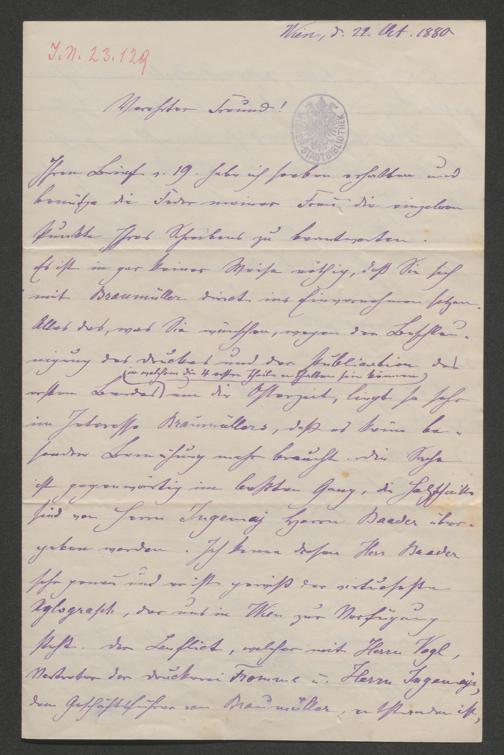 Wien, d. 22. Okt. 1880
J.N. 23.129
Verehrter Freund!
STADTBIBLIOTHEK
Ihren Brief v. 19. habe ich soeben erhalten und
benütze die Feder meiner Frau die einzelnen
Punkte Ihres Schreibens zu beantworten.
Es ist in gar keiner Weise nöthig, daß Sie sich
mit Braumüller direct ins Einvernehmen setzen.
Alles das, was Sie wünschen, wegen der Beschleu-
nigung des Druckes und der Publication des
(in welchem die 4 ersten Theile enthalten sein können)
ersten Bandes um die Osterzeit, liegt so sehr
im Interesse Braumüllers, daß es keine be-
sondere Bemühung mehr braucht. Die Sache
ist gegenwärtig im besten Gang, die Holzstöcke
sind von Herrn Ingemaj Herrn Baader über-
geben worden. Ich kenne diesen Herr Baader
sehr genau und er ist gewiß der virtuoseste
Xylograph, der uns in Wien zur Verfügung
steht. Der Conflict, welcher mit Herrn Vogl,
Vertreter der Druckerei Fromme u. Herrn
dem Geschäftsführer von Braumüller, entstanden ist,